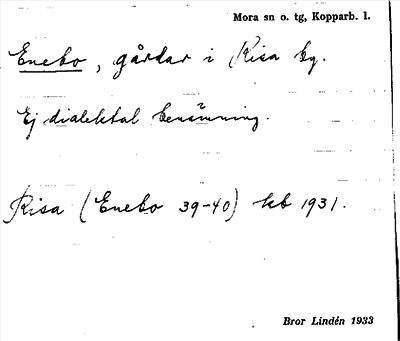 Mora sn o. tg, Kopparb. l.
Enebo, gårdar i Risa by.
Ej dialektal benämning.
Risa (Enebo 39-40) kb 1931.
Bror Lindén 1933